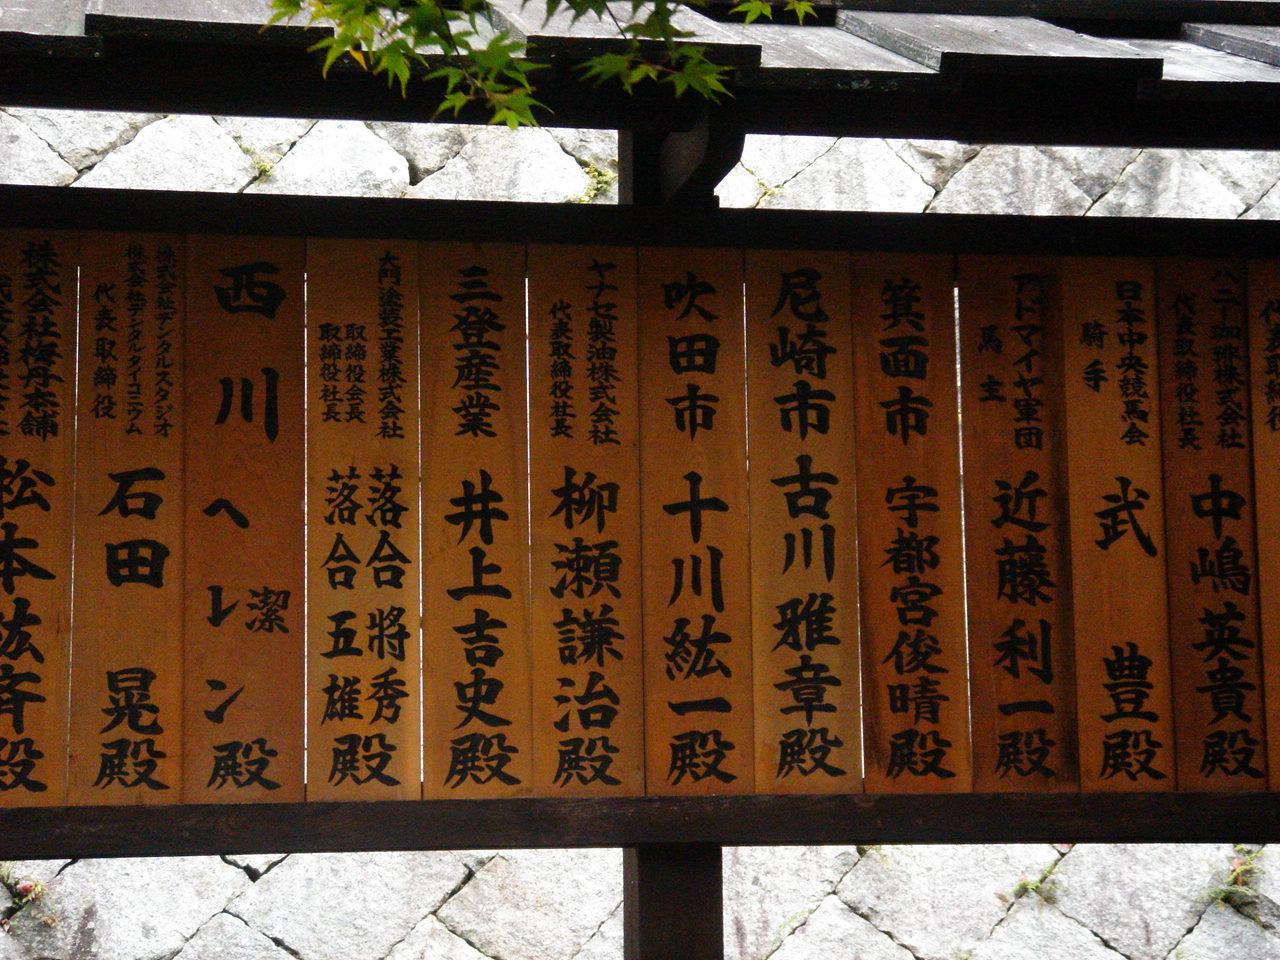 ハニー珈琲株式会社
代表取締役社長
中嶋英貴殿
日本中央競馬会
騎手
武 豊殿
アドマイヤ軍団
馬主
近藤利一殿
箕面市 宇都宮俊晴殿
尼崎市 古川雅章殿
吹田市 十川紘一殿
ツナセ製油株式会社
代表取締役社長
柳瀬謙治殿
三登産業 井上吉史殿
大門塗装工業株式会社
取締役会長
取締役社長
落合將秀
落合五雄殿
西川ヘレン
潔殿
株式会社デンタルスタジオ
株式会社デンタルタイコニウム
代表取締役
石田 晃殿
株式会社梅丹本舗
松本紘斉殿